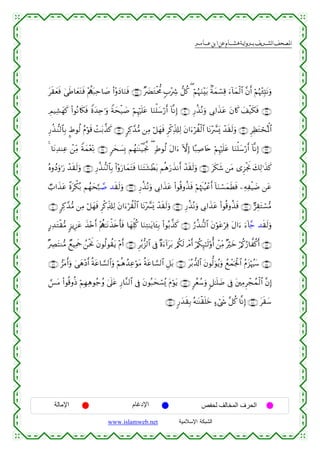 المصحف الشريف برواية هشام عن ابن عامر
وَنَبِّئْهُمْ أَنَّ ٱلْمَآءَ قِسْمَةٌۢ بَيْنَهُمْ ۖ كُلُّ شِرْبٍ مُّحْتَضَرٌ فَنَادَوْا۟ صَاحِبَهُمْ فَتَعَاطَىٰ فَعَقَرَ
فَكَيْفَ كَانَ عَذَابِى وَنُذُرِ إِنَّآ أَرْسَلْنَا عَلَيْهِمْ صَيْحَةً وَٰحِدَةً فَكَانُوا۟ كَهَشِيمِ
ٱلْمُحْتَظِرِ وَلَقَدْ يَسَّرْنَا ٱلْقُرْءَانَ لِلذِّكْرِ فَهَلْ مِن مُّدَّكِرٍ كَذَّبَتْ قَوْمُ لُوطٍۭ بِٱلنُّذُرِ
إِنَّآ أَرْسَلْنَا عَلَيْهِمْ حَاصِبًا إِلَّآ ءَالَ لُوطٍ ۖ نَّجَّيْنَٰهُم بِسَحَرٍ نِّعْمَةً مِّنْ عِندِنَا ۚ
كَذَٰلِكَ نَجْزِى مَن شَكَرَ وَلَقَدْ أَنذَرَهُم بَطْشَتَنَا فَتَمَارَوْا۟ بِٱلنُّذُرِ وَلَقَدْ رَٰوَدُوهُ
عَن ضَيْفِهِۦ فَطَمَسْنَآ أَعْيُنَهُمْ فَذُوقُوا۟ عَذَابِى وَنُذُرِ وَلَقَد صَّبَّحَهُم بُكْرَةً عَذَابٌ
مُّسْتَقِرٌّ فَذُوقُوا۟ عَذَابِى وَنُذُرِ وَلَقَدْ يَسَّرْنَا ٱلْقُرْءَانَ لِلذِّكْرِ فَهَلْ مِن مُّدَّكِرٍ
وَلَقَد جَّآءَ ءَالَ فِرْعَوْنَ ٱلنُّذُرُ كَذَّبُوا۟ بِـَٔايَٰتِنَا كُلِّهَا فَأَخَذْنَٰهُمْ أَخْذَ عَزِيزٍ مُّقْتَدِرٍ
أَكُفَّارُكُمْ خَيْرٌ مِّنْ أُو۟لَٰٓئِكُمْ أَمْ لَكُم بَرَآءَةٌ فِى ٱلزُّبُرِ أَمْ يَقُولُونَ نَحْنُ جَمِيعٌ مُّنتَصِرٌ
سَيُهْزَمُ ٱلْجَمْعُ وَيُوَلُّونَ ٱلدُّبُرَ بَلِ ٱلسَّاعَةُ مَوْعِدُهُمْ وَٱلسَّاعَةُ أَدْهَىٰ وَأَمَرُّ
إِنَّ ٱلْمُجْرِمِينَ فِى ضَلَٰلٍ وَسُعُرٍ يَوْمَ يُسْحَبُونَ فِى ٱلنَّارِ عَلَىٰ وُجُوهِهِمْ ذُوقُوا۟ مَسَّ
سَقَرَ إِنَّا كُلَّ شَىْءٍ خَلَقْنَٰهُ بِقَدَرٍ
الحرف المخالف لحفص الإدغام الإمالة
الشبكة الإسلامية www.islamweb.net